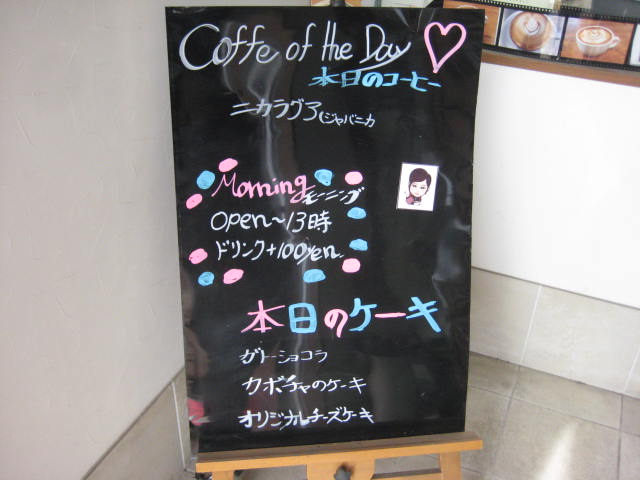 Coffe of the Day
本日のコーヒー
ニカラグア(ジャバニカ
Morning モーニング
open〜13時
ドリンク+100yen
本日のケーキ
ガトーショコラ
カボチャのケーキ
オリジナルチーズケーキ